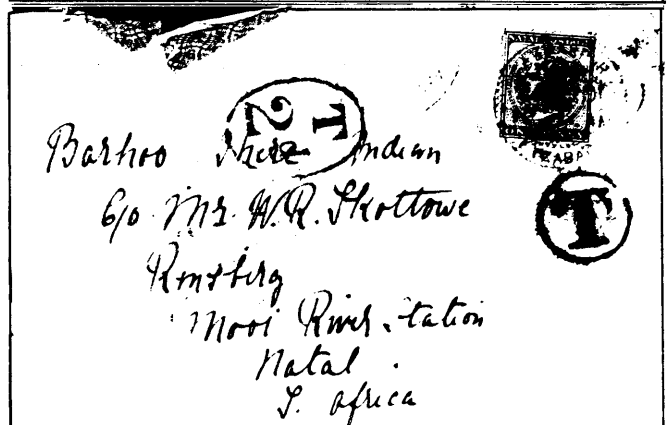 T
2
FZABA
Barhoo Shere Indian
T
c/o Mr. W. R. Skottowe
Rensberg
Mooi River Station
Natal.
S. Africa